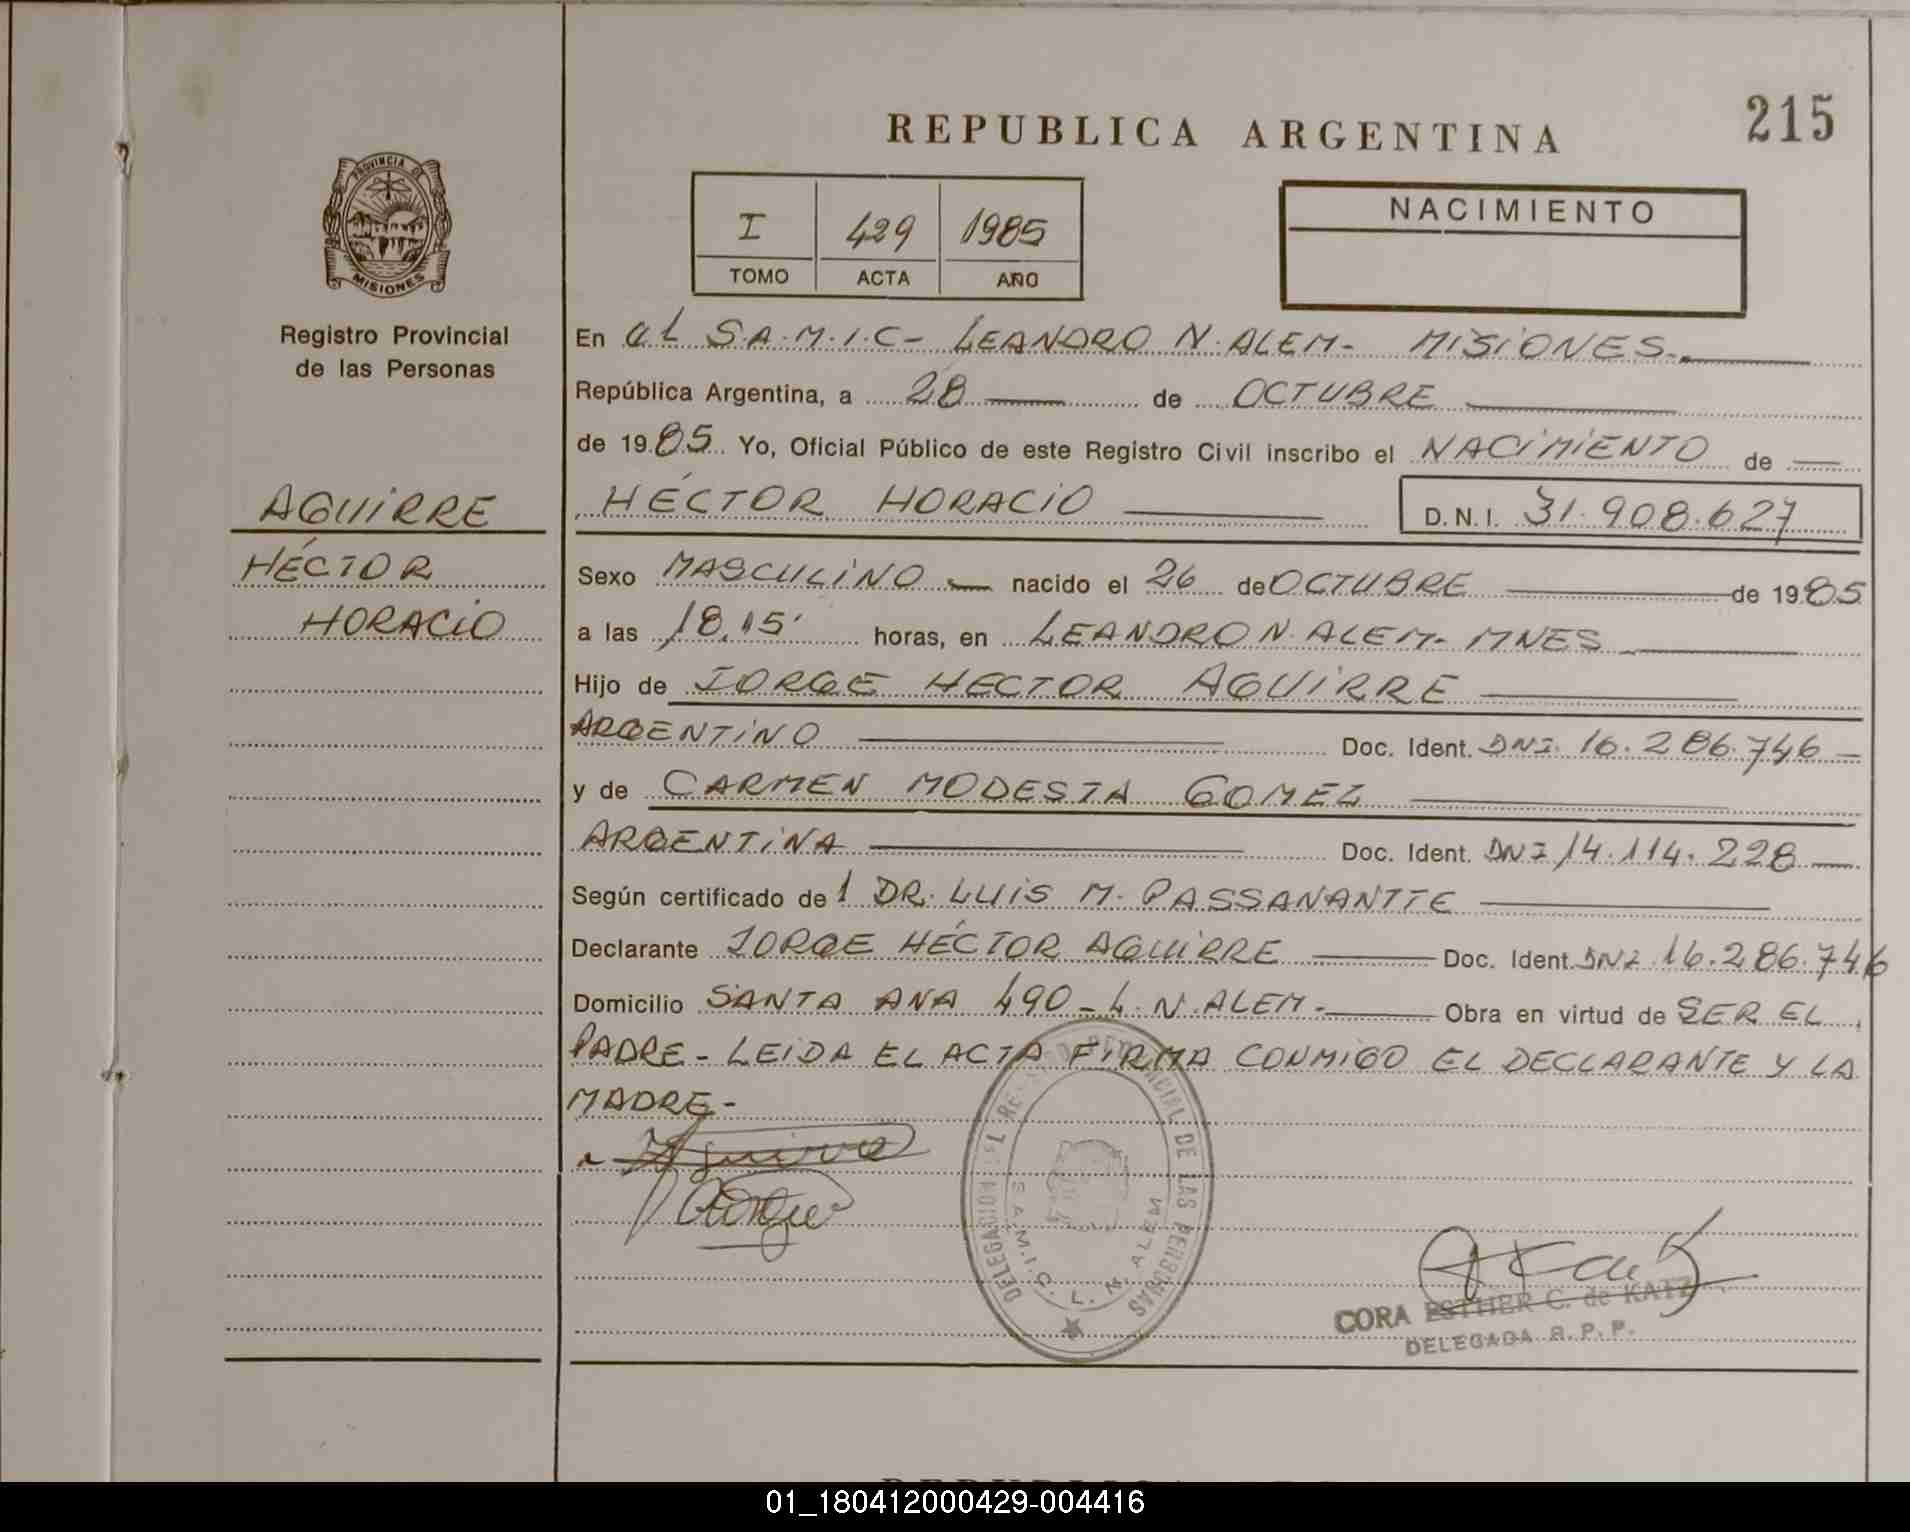 REPUBLICA ARGENTINA
215
PROVINCIA DE
MISIONES
Registro Provincial
de las Personas
I 429 1985
TOMO ACTA AÑO
NACIMIENTO
En el S.A.M.I.C- LEANDRO N. ALEM- MISIONES.
República Argentina, a 28 de OCTUBRE
de 1985 Yo, Oficial Público de este Registro Civil inscribo el NACIMIENTO de
AGUIRRE
HÉCTOR
HORACIO
HÉCTOR HORACIO D.N.I. 31.908.627
Sexo MASCULINO nacido el 26 de OCTUBRE de 1985
a las 18,15' horas, en LEANDRO N. ALEM- MNES
Hijo de JORGE HECTOR AGUIRRE
ARGENTINO Doc. Ident. DNI. 16.286.746
y de CARMEN MODESTA GOMEZ
ARGENTINA Doc. Ident. DNI 14.114.228
Según certificado de 1 DR. LUIS M. PASSANANTTE
Declarante JORGE HÉCTOR AGUIRRE Doc. Ident. DNI 16.286.746
Domicilio SANTA ANA 490-L.N.ALEM- Obra en virtud de SER EL
PADRE- LEIDA EL ACTA FIRMA CONMIGO EL DECLARANTE Y LA
MADRE-
DELEGACION REGISTRO PROVINCIAL DE LAS PERSONAS
S.A.M.I.C. L. N. ALEM
CORA ESTHER C. de KATZ
DELEGADA R.P.P.
REPUBLICA
01_180412000429-004416